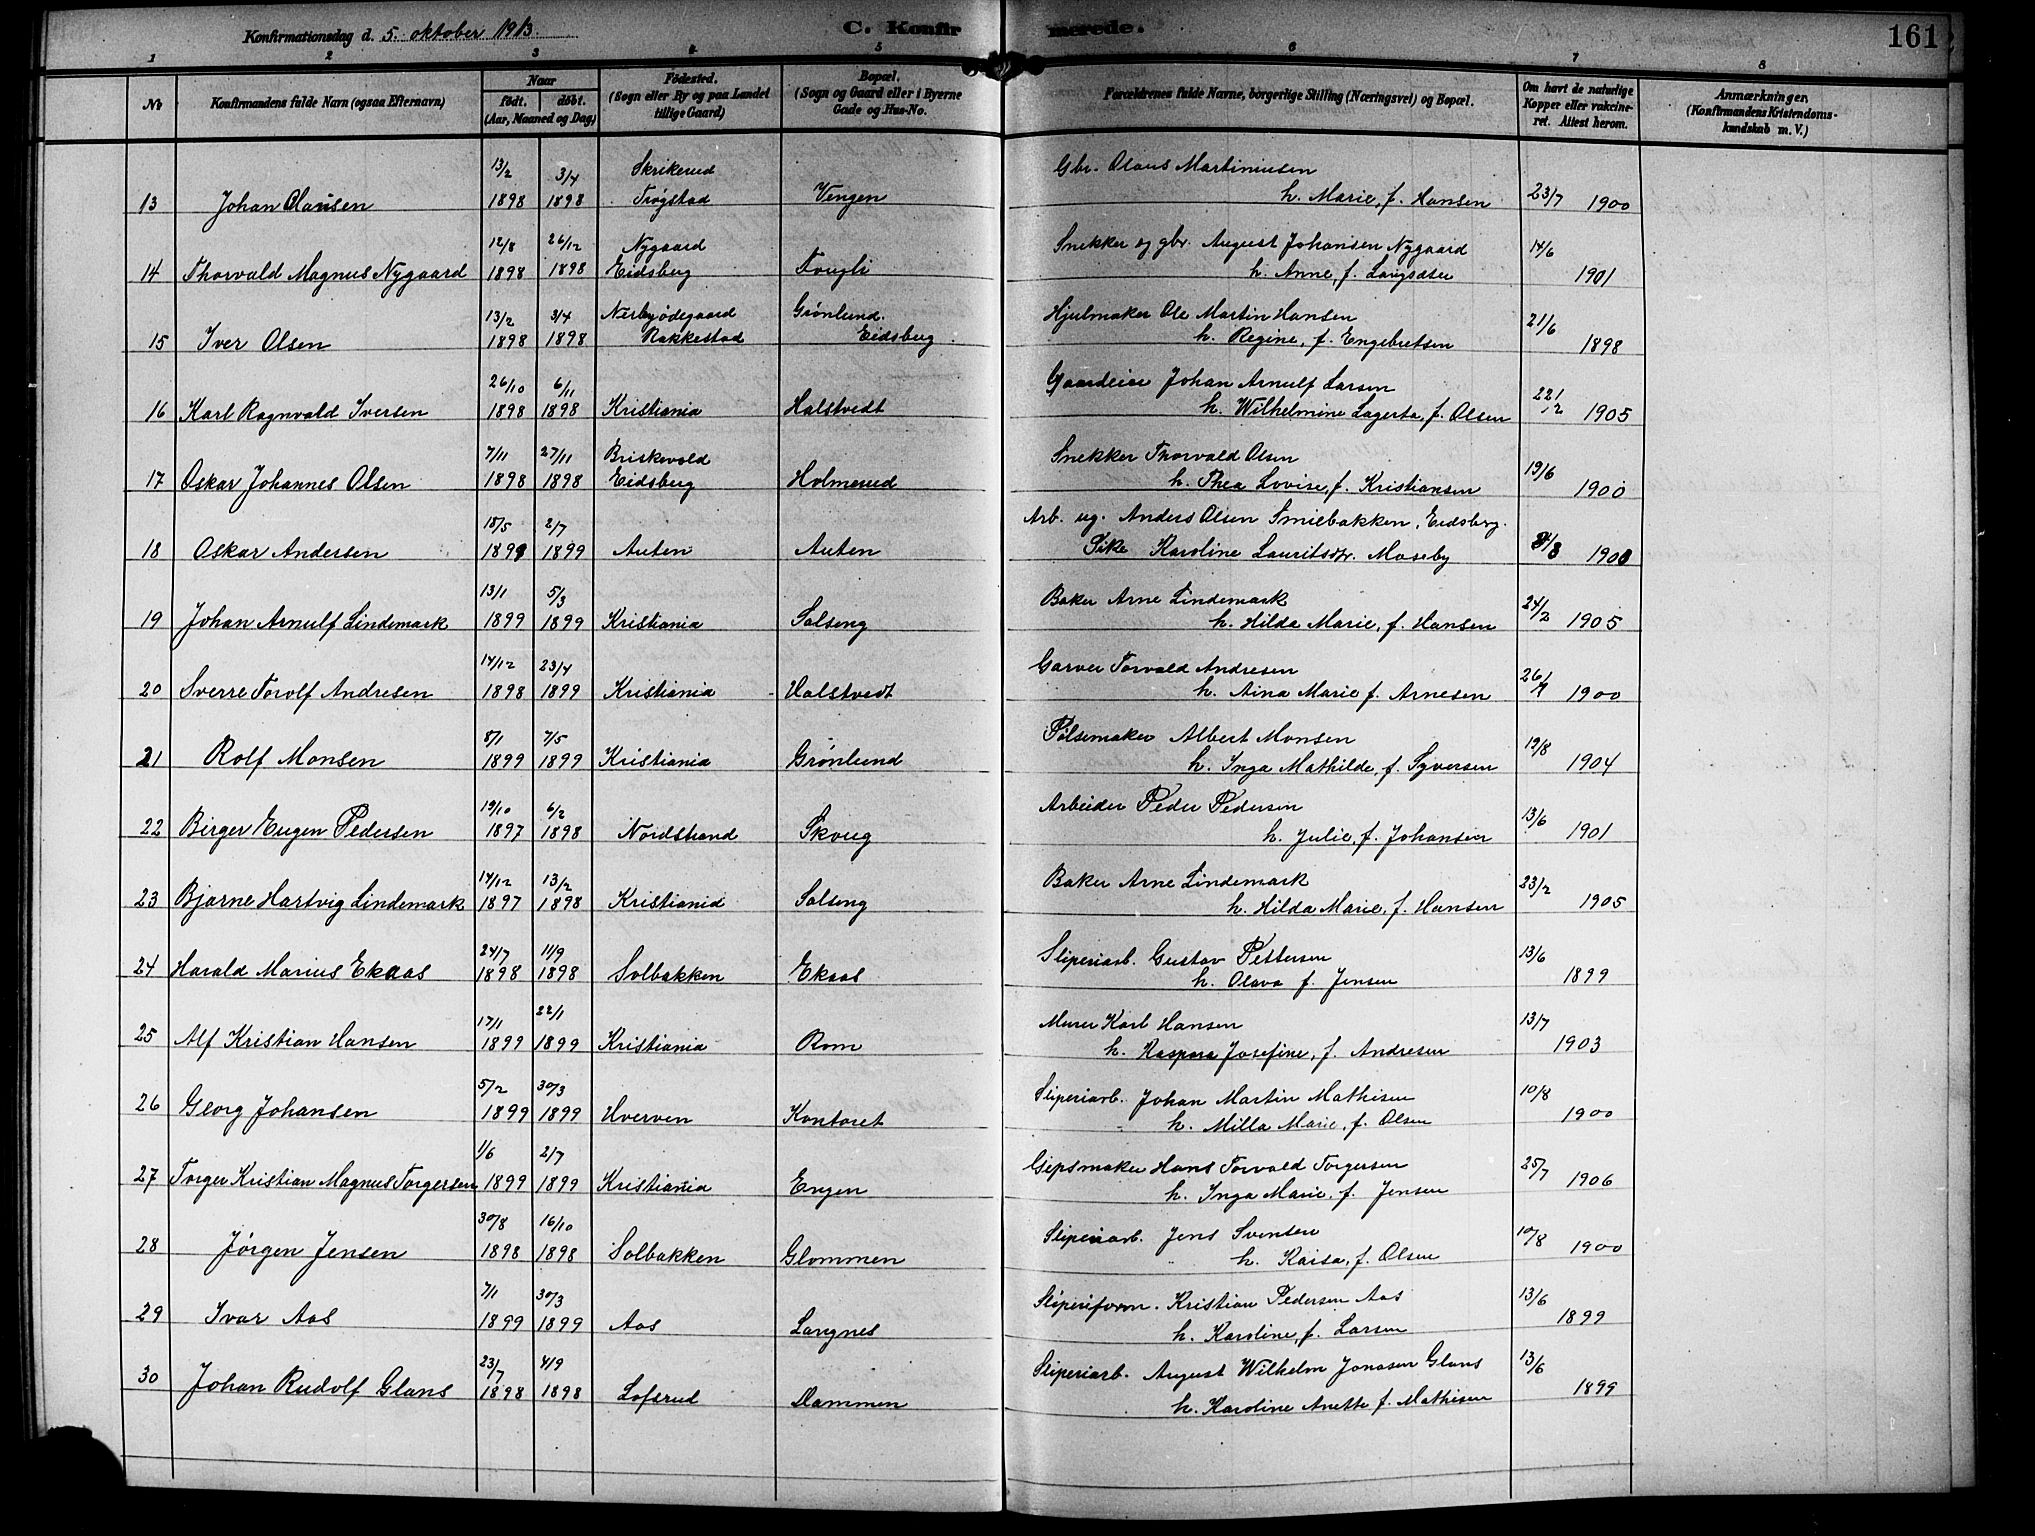 Konfirmationsdag d. 5. oktober 1913.
C. Konfirmerede.
161
1 2 3 4 5 6 7 8
No
Konfirmandens fulde Navn (ogsaa Efternavn)
Naar født. døbt. (Aar, Maaned og Dag)
Fødested. (Sogn eller By og paa Landet tillige Gaard)
Bopæl. (Sogn og Gaard eller i Byerne Gade og Hus-No.
Forældrenes fulde Navne, borgerlige Stilling (Næringsvei) og Bopæl.
Om havt de naturlige Kopper eller vakcineret. Attest herom.
Anmærkninger. (Konfirmandens Kristendomskundskab m. V.)
13/2 3/4 Skrikerud Gbr. Olaus Martiniusen
13 Johan Olausen 1898 1898 Trøgstad Vengen h. Marie, f. Hansen 23/7 1900
12/8 26/12 Nygaard Snekker og gbr. August Johansen Nygaard 14/6
14 Thorvald Magnus Nygaard 1898 1898 Eidsberg Fougli h. Anne, f. Langsæter 1901
13/2 3/4 Nerbyødegaard Grønlund. Hjulmaker Ole Martin Hansen 21/6
15 Iver Olsen 1898 1898 Rakkestad Eidsberg h. Regine, f. Engebretsen 1898
26/10 6/11 Gaardeier Johan Arnulf Larsen
16 Karl Ragnvald Iversen 1898 1898 Kristiania Halstvedt h. Wilhelmine Lagerta, f. Olsen 22/12 1905
7/11 27/11 Briskevold Snekker Thorvald Olsen
17 Oskar Johannes Olsen 1898 1898 Eidsberg Holmerud h. Thea Lovise, f. Kristiansen 19/6 1900
18/5 2/7 Arb. ug. Anders Olsen Smiebakken, Eidsberg.
18 Oskar Andersen 1899 1899 Auten Auten Pike Karoline Lauritsdtr. Moseby
13/1 5/3 Baker Arne Lindemark
19 Johan Arnulf Lindemark 1899 1899 Kristiania Solseng h. Hilda Marie, f. Hansen 24/2 1905
14/12 23/4 Garver Torvald Andresen
20 Sverre Torolf Andresen 1898 1899 Kristiania Halstvedt h. Aina Marie f. Arnesen 1900
8/1 7/5 Pølsemaker Albert Monsen
21 Rolf Monsen 1899 1899 Kristiania Grønlund h. Inga Mathilde, f. Syversen 19/8 1904
19/10 6/2 Arbeider Peder Pedersen
22 Birger Eugen Pedersen 1897 1898 Nordstrand Skoug h. Julie, f. Johansen 13/6 1901
14/12 13/2 Baker Arne Lindemark
23 Bjarne Hartvig Lindemark 1897 1898 Kristiania Solseng h. Hilda Marie, f. Hansen 23/2 1905
24/7 11/9 Sliperiarb. Gustav Pettersen
24 Harald Marius Ekaas 1898 1898 Solbakken Ekaas h. Olava f. Jensen 13/6 1899
17/1 22/1 Murer Karl Hansen
25 Alf Kristian Hansen 1899 1899 Kristiania Rom h. Kaspara Josefine, f. Andresen 13/7 1903
5/2 30/3 Sliperiarb. Johan Martin Mathisen
26 Georg Johansen 1899 1899 Hverven Kontoret h. Milla Marie, f. Olsen 10/8 1900
1/6 2/7 Gipsmaker Hans Torvald Torgersen
27 Torger Kristian Magnus Torgersen 1899 1899 Kristiania Engen h. Inga Marie, f. Jensen 25/7 1906
30/8 16/10 Sliperiarb. Jens Svensen
28 Jørgen Jensen 1898 1898 Solbakken Glommen h. Kaisa, f. Olsen 10/8 1900
7/1 30/3 Sliperiform. Kristian Pedersen Aas
29 Ivar Aas 1899 1899 Aas Langnes h. Karoline, f. Larsen 13/6 1899
23/7 4/9 Sliperiarb. August Wilhelm Jonasen Glans
30 Johan Rudolf Glans 1898 1898 Lofsrud Dammen h. Karoline Anette f. Mathisen 13/6 1899